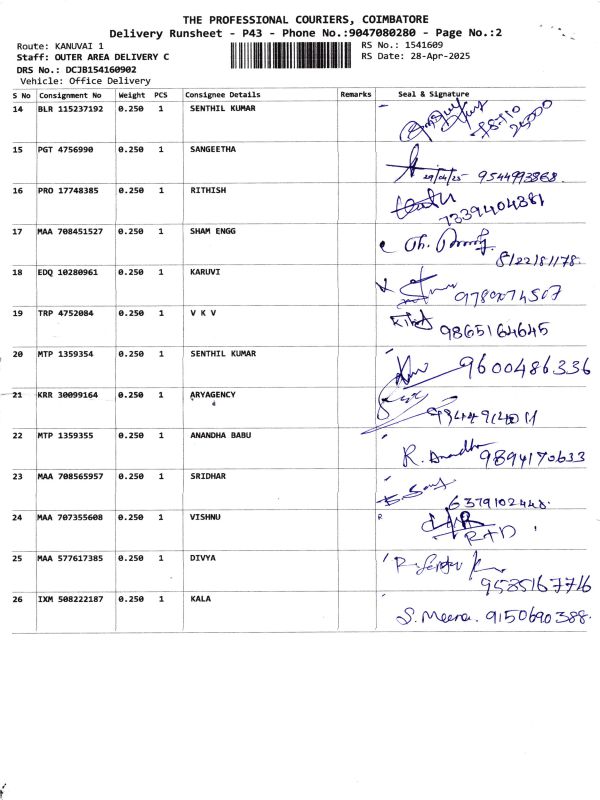 THE PROFESSIONAL COURIERS, COIMBATORE
Delivery Runsheet - P43 - Phone No.:9047080280 - Page No.:2
Route: KANUVAI 1 RS No.: 1541609
Staff: OUTER AREA DELIVERY C RS Date: 28-Apr-2025
DRS No.: DCJB154160902
Vehicle: Office Delivery
S No Consignment No Weight PCS Consignee Details Remarks Seal & Signature
14 BLR 115237192 0.250 1 SENTHIL KUMAR
15 PGT 4756990 0.250 1 SANGEETHA
29/04/25 9544993868.
16 PRO 17748385 0.250 1 RITHISH
7339404381
17 MAA 708451527 0.250 1 SHAM ENGG
8122181178.
18 EDQ 10280961 0.250 1 KARUVI
19 TRP 4752084 0.250 1 V K V
9865164645
20 MTP 1359354 0.250 1 SENTHIL KUMAR
9600486336
21 KRR 30099164 0.250 1 ARYAGENCY
22 MTP 1359355 0.250 1 ANANDHA BABU
R. Anandha 9894170633
23 MAA 708565957 0.250 1 SRIDHAR
6379102440.
24 MAA 707355608 0.250 1 VISHNU R
25 MAA 577617385 0.250 1 DIVYA
9585167716
26 IXM 508222187 0.250 1 KALA
S. Meena. 9150690388.